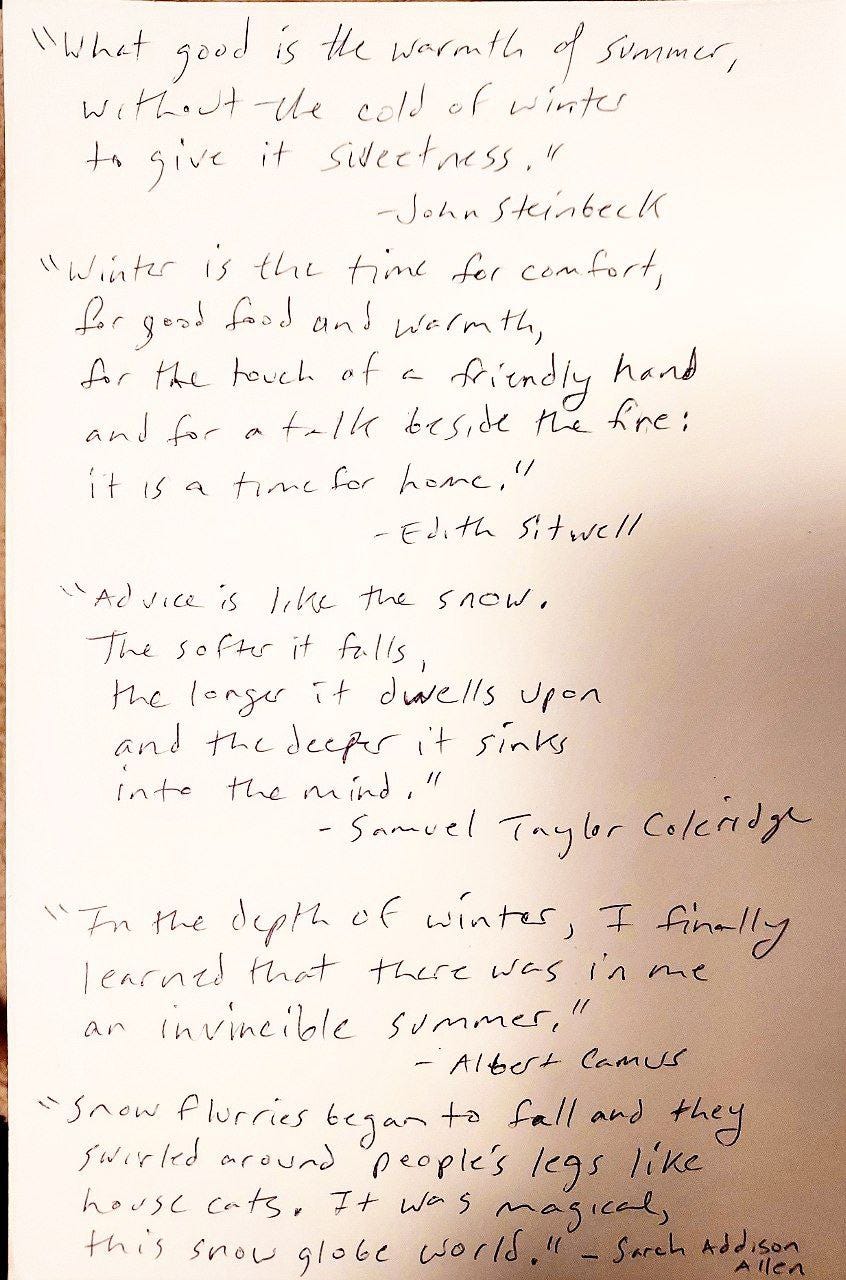 "What good is the warmth of summer,
without the cold of winter
to give it sweetness."
-John Steinbeck
"Winter is the time for comfort,
for good food and warmth,
for the touch of a friendly hand
and for a talk beside the fire:
it is a time for home."
-Edith Sitwell
"Advice is like the snow.
The softer it falls,
the longer it dwells upon
and the deeper it sinks
into the mind."
- Samuel Taylor Coleridge
"In the depth of winter, I finally
learned that there was in me
an invincible summer."
- Albert Camus
"Snow flurries began to fall and they
swirled around people's legs like
house cats. It was magical,
this snow globe world." - Sarah Addison
Allen